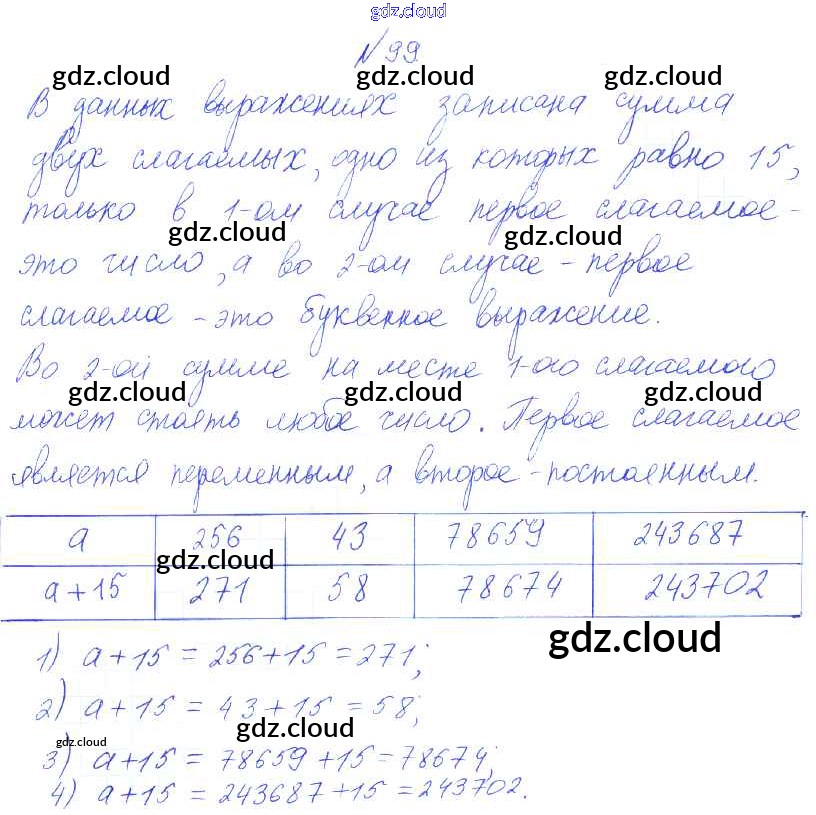 gdz.cloud
№99
gdz.cloud gdz.cloud gdz.cloud
В данных выражениях записана сумма
двух слагаемых, одно из которых равно 15,
только в 1-ом случае первое слагаемое -
gdz.cloud gdz.cloud
это число, а во 2-ом случае - первое
слагаемое - это буквенное выражение.
Во 2-ой сумме на месте 1-ого слагаемого
gdz.cloud gdz.cloud gdz.cloud
может стоять любое число. Первое слагаемое
является переменным, а второе - постоянным.
a 256 43 78659 243687
gdz.cloud
a+15 271 58 78674 243702
gdz.cloud
1) a+15 = 256+15 = 271;
2) a+15 = 43+15 = 58;
gdz.cloud
gdz.cloud
3) a+15 = 78659+15 = 78674;
4) a+15 = 243687+15 = 243702.